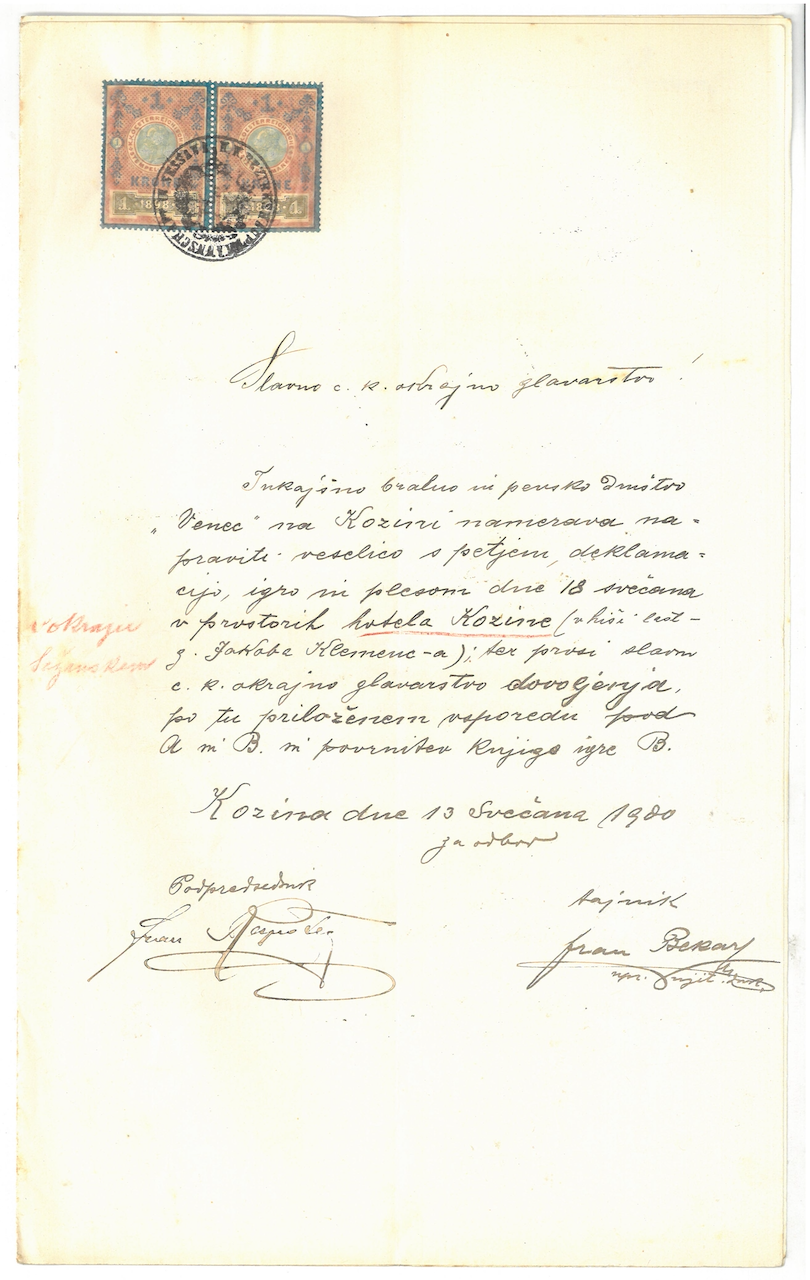 1 1
KRONE
1 1898 1898 1
K.K. BEZIRKSHAUPTMANNSCHAFT SESSANA
Slavno c. k. okrajno glavarstvo!
Tukajšno bralno in pevsko društvo
„Venec“ na Kozini namerava na=
praviti veselico s petjem, deklama=
cijo, igro in plesom dne 18 svečana
v prostorih hotela Kozine (v hiši last-
g. Jakoba Klemenc-a); ter prosi slavno
c. k. okrajno glavarstvo dovoljenja,
po tu priloženem vsporedu pod
A in B. in povrnitev knjige igre B.
v okraju
Kozina dne 13 Svečana 1900
za odbor
Podpredsednik
tajnik
Fran
Fran Bekar